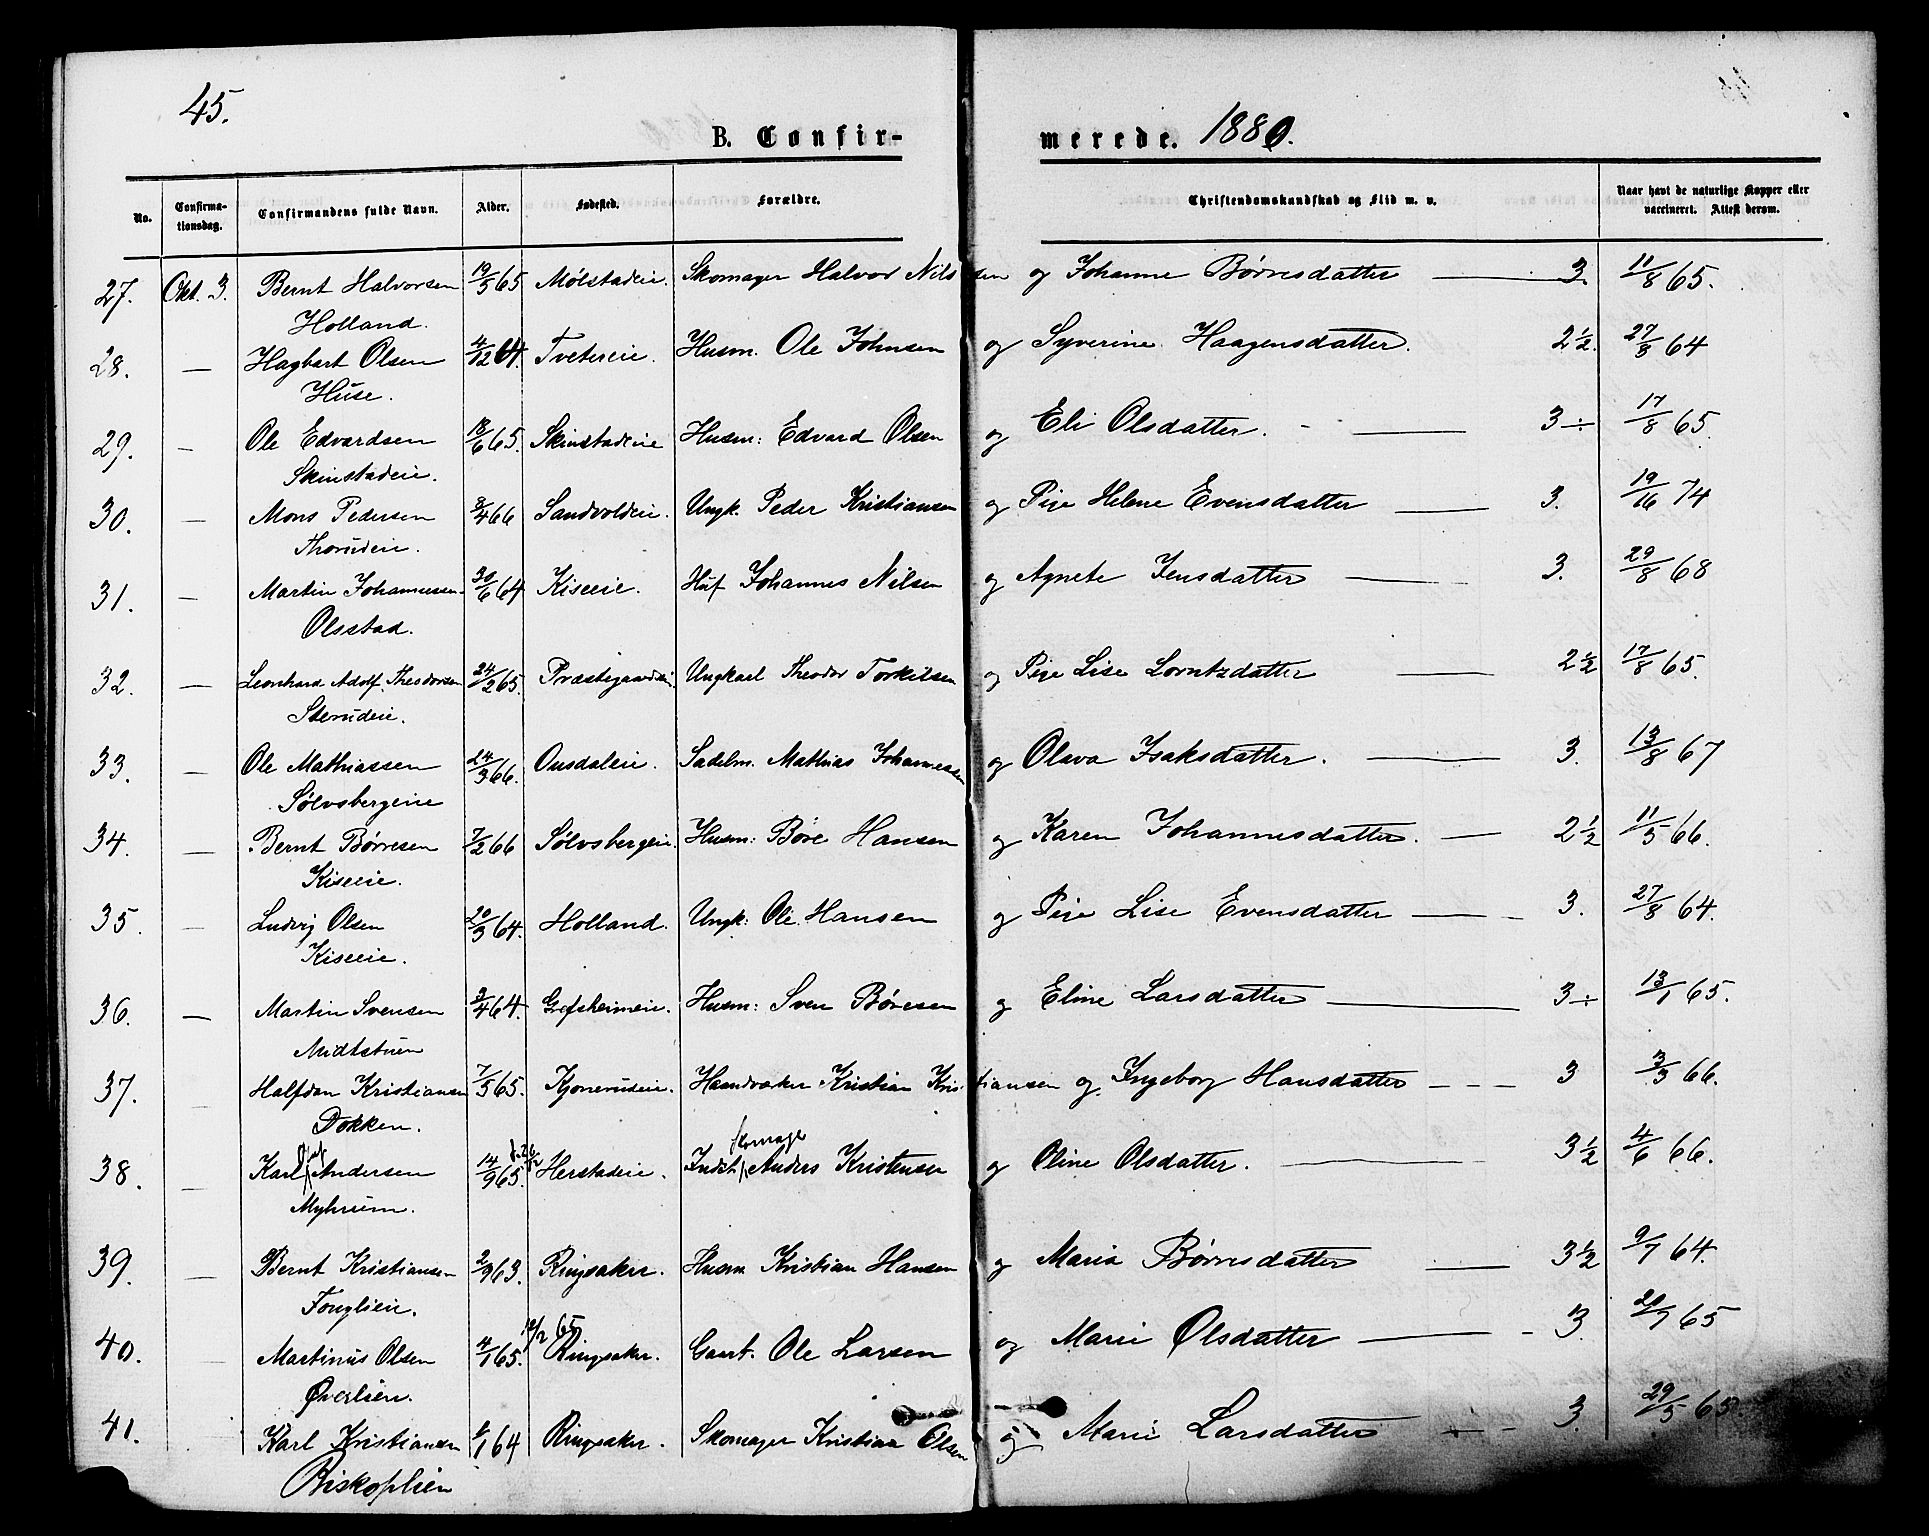 45.
B. Confirmerede. 1880.
No. Confirmationsdag. Confirmandens fulde Navn. Alder. Fødested. Forældre. Christendomskundskab og Flid m. v. Naar havt de naturlige Kopper eller vaccineret. Attest derom.
27. Okt. 3. Bernt Halvorsen 19/5 65 Mølstadeie. Skomager Halvor Nilssen og Johanne Børresdatter — 3. 11/8 65.
Holland.
28. — Hagbart Olsen 4/12 64. Tvetereie. Husm. Ole Johnsen og Syverine Haagensdatter. 2½. 27/8 64
Huse.
29. — Ole Edvardsen 18/6 65. Skinstadeie Husm: Edvard Olsen og Eli Olsdatter. — 3÷ 17/8 65.
Skinstadeie.
30. — Mons Pedersen 8/4 66 Sandvoldeie. Ungk. Peder Kristiansen og Pige Helene Evensdatter — 3. 19/16 74
Thorudeie.
31. — Martin Johannessen 30/6 64 Kiseeie. Huf Johannes Nilsen og Agnete Jensdatter — 3. 29/8 68
Olsstad.
32. — Leonhard Adolf Theodorsen 24/2 65. Præstegaardseie Ungkarl Theodor Torkilsen og Pige Lise Lorntzdatter — 2½ 17/8 65.
Sterudeie.
33. — Ole Mathiassen 24/3 66. Onsdaleie. Sadelm. Mathias Johannessen og Olava Isaksdatter. — 3. 13/8 67
Sølvsbergeie
34. — Bernt Børresen 7/2 66 Sølvsbergeie. Husm: Børe Hansen og Karen Johannesdatter. — 2½ 11/5 66.
Kiseeie.
35. — Ludvig Olsen 20/3 64. Holland. Ungk: Ole Hansen og Pige Lise Evensdatter — 3. 27/8 64.
Kiseeie.
36. — Martin Svensen 3/4 64. Gefsheimeie. Husm: Sven Børesen og Eline Larsdatter — 3÷ 13/1 65.
Midtstuen
37. — Halfdan Kristiansen 7/5 65. Kjonerudeie. Haandværker Kristian Kristiansen og Ingeborg Hansdatter — 3 3/3 66.
Dokken.
38. — Karl Olaf Andersen 14/9 65. Herstadeie. Indst. skomager Anders Kristensen og Oline Olsdatter. — 3½ 4/6 66.
Myhrum.
39. — Bernt Kristiansen 2/9 63. Ringsaker. Husm Kristian Hansen og Maria Børresdatter — 3½ 9/7 64.
Fonglieie.
40. Martinus Olsen 4/1 65. 12/2 65 Ringsaker. Gaart. Ole Larsen og Marie Olsdatter — 3. 20/7 65
Øverlien.
41. Karl Kristiansen 4/1 64 Ringsaker. Skomager Kristian Olsen og Marie Larsdatter — 3. 29/5 65.
Biskoplien